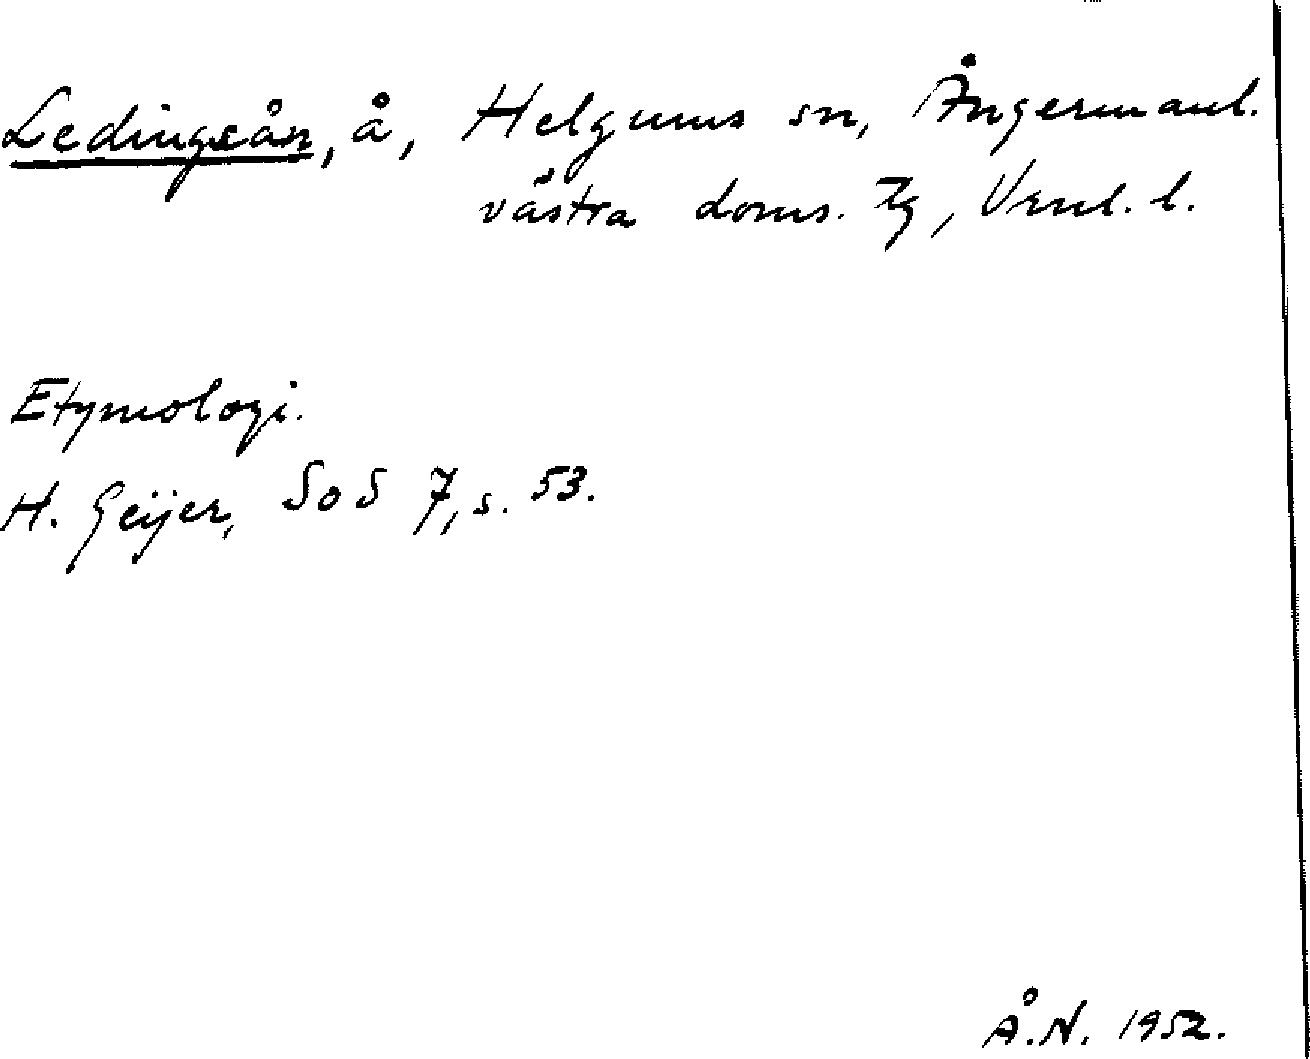 Ledingsån, å, Helgums sn, Ångermanl.
västra doms. tg, Vnl. l.
Etymologi.
H. Geijer, SoS 7, s. 53.
Å.N. 1952.